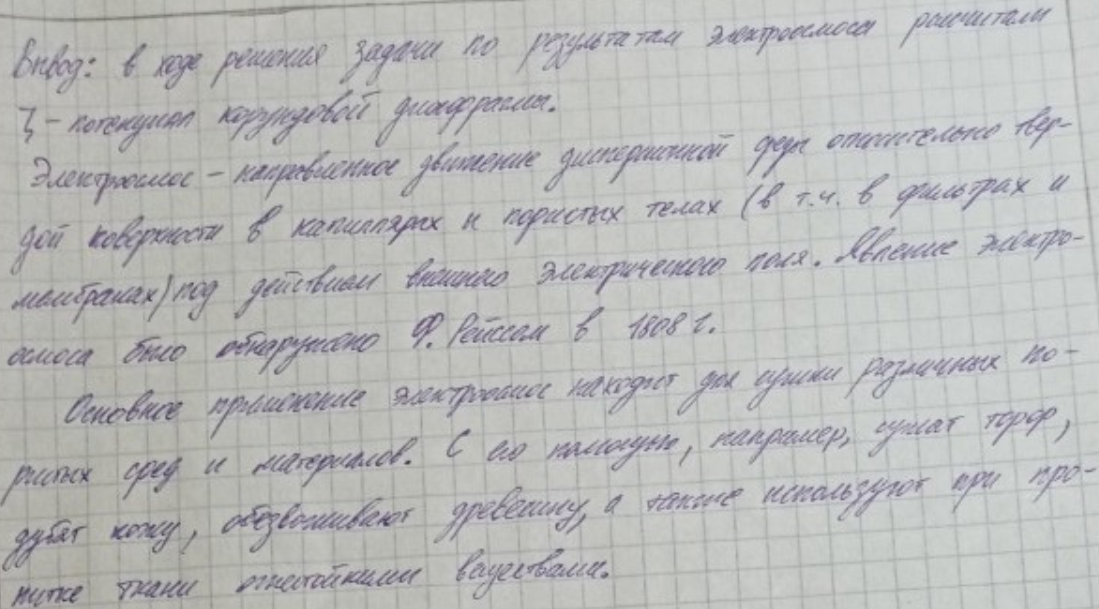 Вывод: в ходе решения задачи по результатам электроосмоса рассчитали
ζ - потенциал корундовой диафрагмы.
Электроосмос - направленное движение дисперсионной среды относительно твер-
дой поверхности в капиллярах и пористых телах (в т.ч. в фильтрах и
мембранах) под действием внешнего электрического поля. Явление электро-
осмоса было обнаружено Ф. Рейссом в 1808 г.
Основное применение электроосмос находит для сушки различных по-
ристых сред и материалов. С его помощью, например, сушат торф,
дубят кожу, обезвоживают древесину, а также используют при про-
питке ткани огнестойкими веществами.